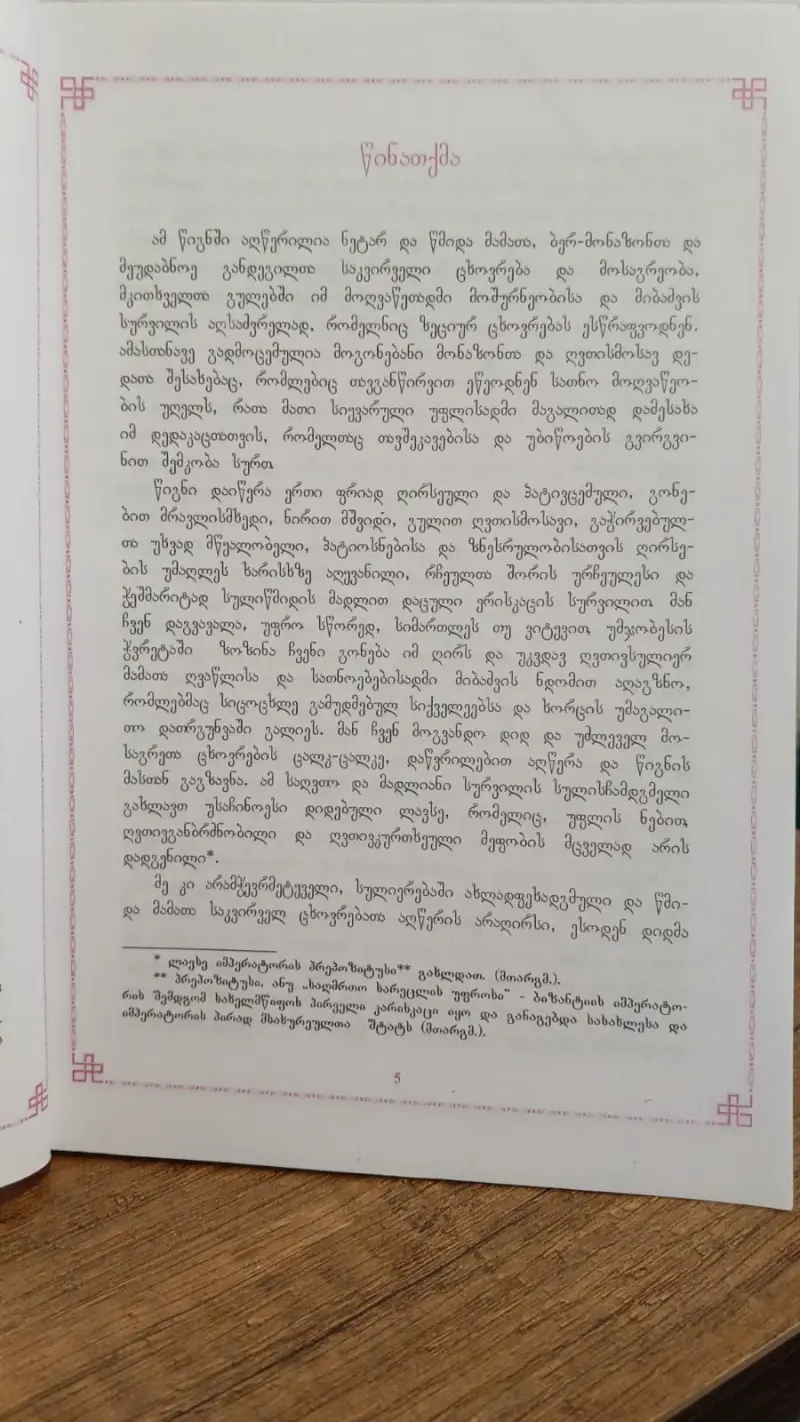 წინათქმა
ამ წიგნში აღწერილია ნეტარ და წმიდა მამათა, ბერ-მონაზონთა და
მეუდაბნოე განდეგილთა საკვირველი ცხოვრება და მოსაგრეობა,
მკითხველთა გულებში იმ მოღვაწეთადმი მოშურნეობისა და მიბაძვის
სურვილის აღსაძვრელად, რომელნიც ზეციურ ცხოვრებას ესწრაფვოდნენ.
ამასთანავე გადმოცემულია მოგონებანი მონაზონთა და ღვთისმოსავ დე-
დათა შესახებაც, რომლებიც თავგანწირვით ეწეოდნენ სათნო მოღვაწეო-
ბის უღელს, რათა მათი სიყვარული უფლისადმი მაგალითად დამესახა
იმ დედაკაცთათვის, რომელთაც თავშეკავებისა და უბიწოების გვირგვი-
ნით შემკობა სურთ.
წიგნი დაიწერა ერთი ფრიად ღირსეული და პატივცემული, გონე-
ბით მრავლისმხედი, ნირით მშვიდი, გულით ღვთისმოსავი, გაჭირვებულ-
თა უხვად მწყალობელი, პატიოსნებისა და ზნესრულობისათვის ღირსე-
ბის უმაღლეს ხარისხზე აღყვანილი, რჩეულთა შორის ურჩეულესი და
ჭეშმარიტად სულიწმიდის მადლით დაცული ერისკაცის სურვილით. მან
ჩვენ დაგვავალა, უფრო სწორედ, სიმართლეს თუ ვიტყვით, უმჯობესის
ჭვრეტაში ზოზინა ჩვენი გონება იმ ღირს და უკვდავ ღვთივსულიერ
მამათა ღვაწლისა და სათნოებებისადმი მიბაძვის ნდომით აღაგზნო,
რომლებმაც სიცოცხლე გამუდმებულ სიქველეებსა და ხორცის უმაგალი-
თო დათრგუნვაში გალიეს. მან ჩვენ მოგვანდო დიდ და უძლეველ მო-
საგრეთა ცხოვრების ცალკ-ცალკე, დაწვრილებით აღწერა და წიგნის
მასთან გაგზავნა. ამ საღვთო და მადლიანი სურვილის სულისჩამდგმელი
გახლავთ უსაჩინოესი დიდებული ლავსე, რომელიც, უფლის ნებით,
ღვთივგანბრძნობილი და ღვთივკურთხეული მეფობის მცველად არის
დადგენილი*.
მე კი არამჭევრმეტყველი, სულიერებაში ახლადფეხადგმული და წმი-
და მამათა საკვირველ ცხოვრებათა აღწერის არაღირსი, ესოდენ დიდმა
* ლავსე იმპერატორის პრეპოზიტუსი** გახლდათ. (მთარგმ.).
** პრეპოზიტუსი, ანუ „საღმრთო სარეცლის უფროსი“ - ბიზანტიის იმპერატო-
რის შემდგომ სახელმწიფოს პირველი კარისკაცი იყო და განაგებდა სასახლესა და
იმპერატორის პირად მსახურეულთა შტატს (მთარგმ.).
5